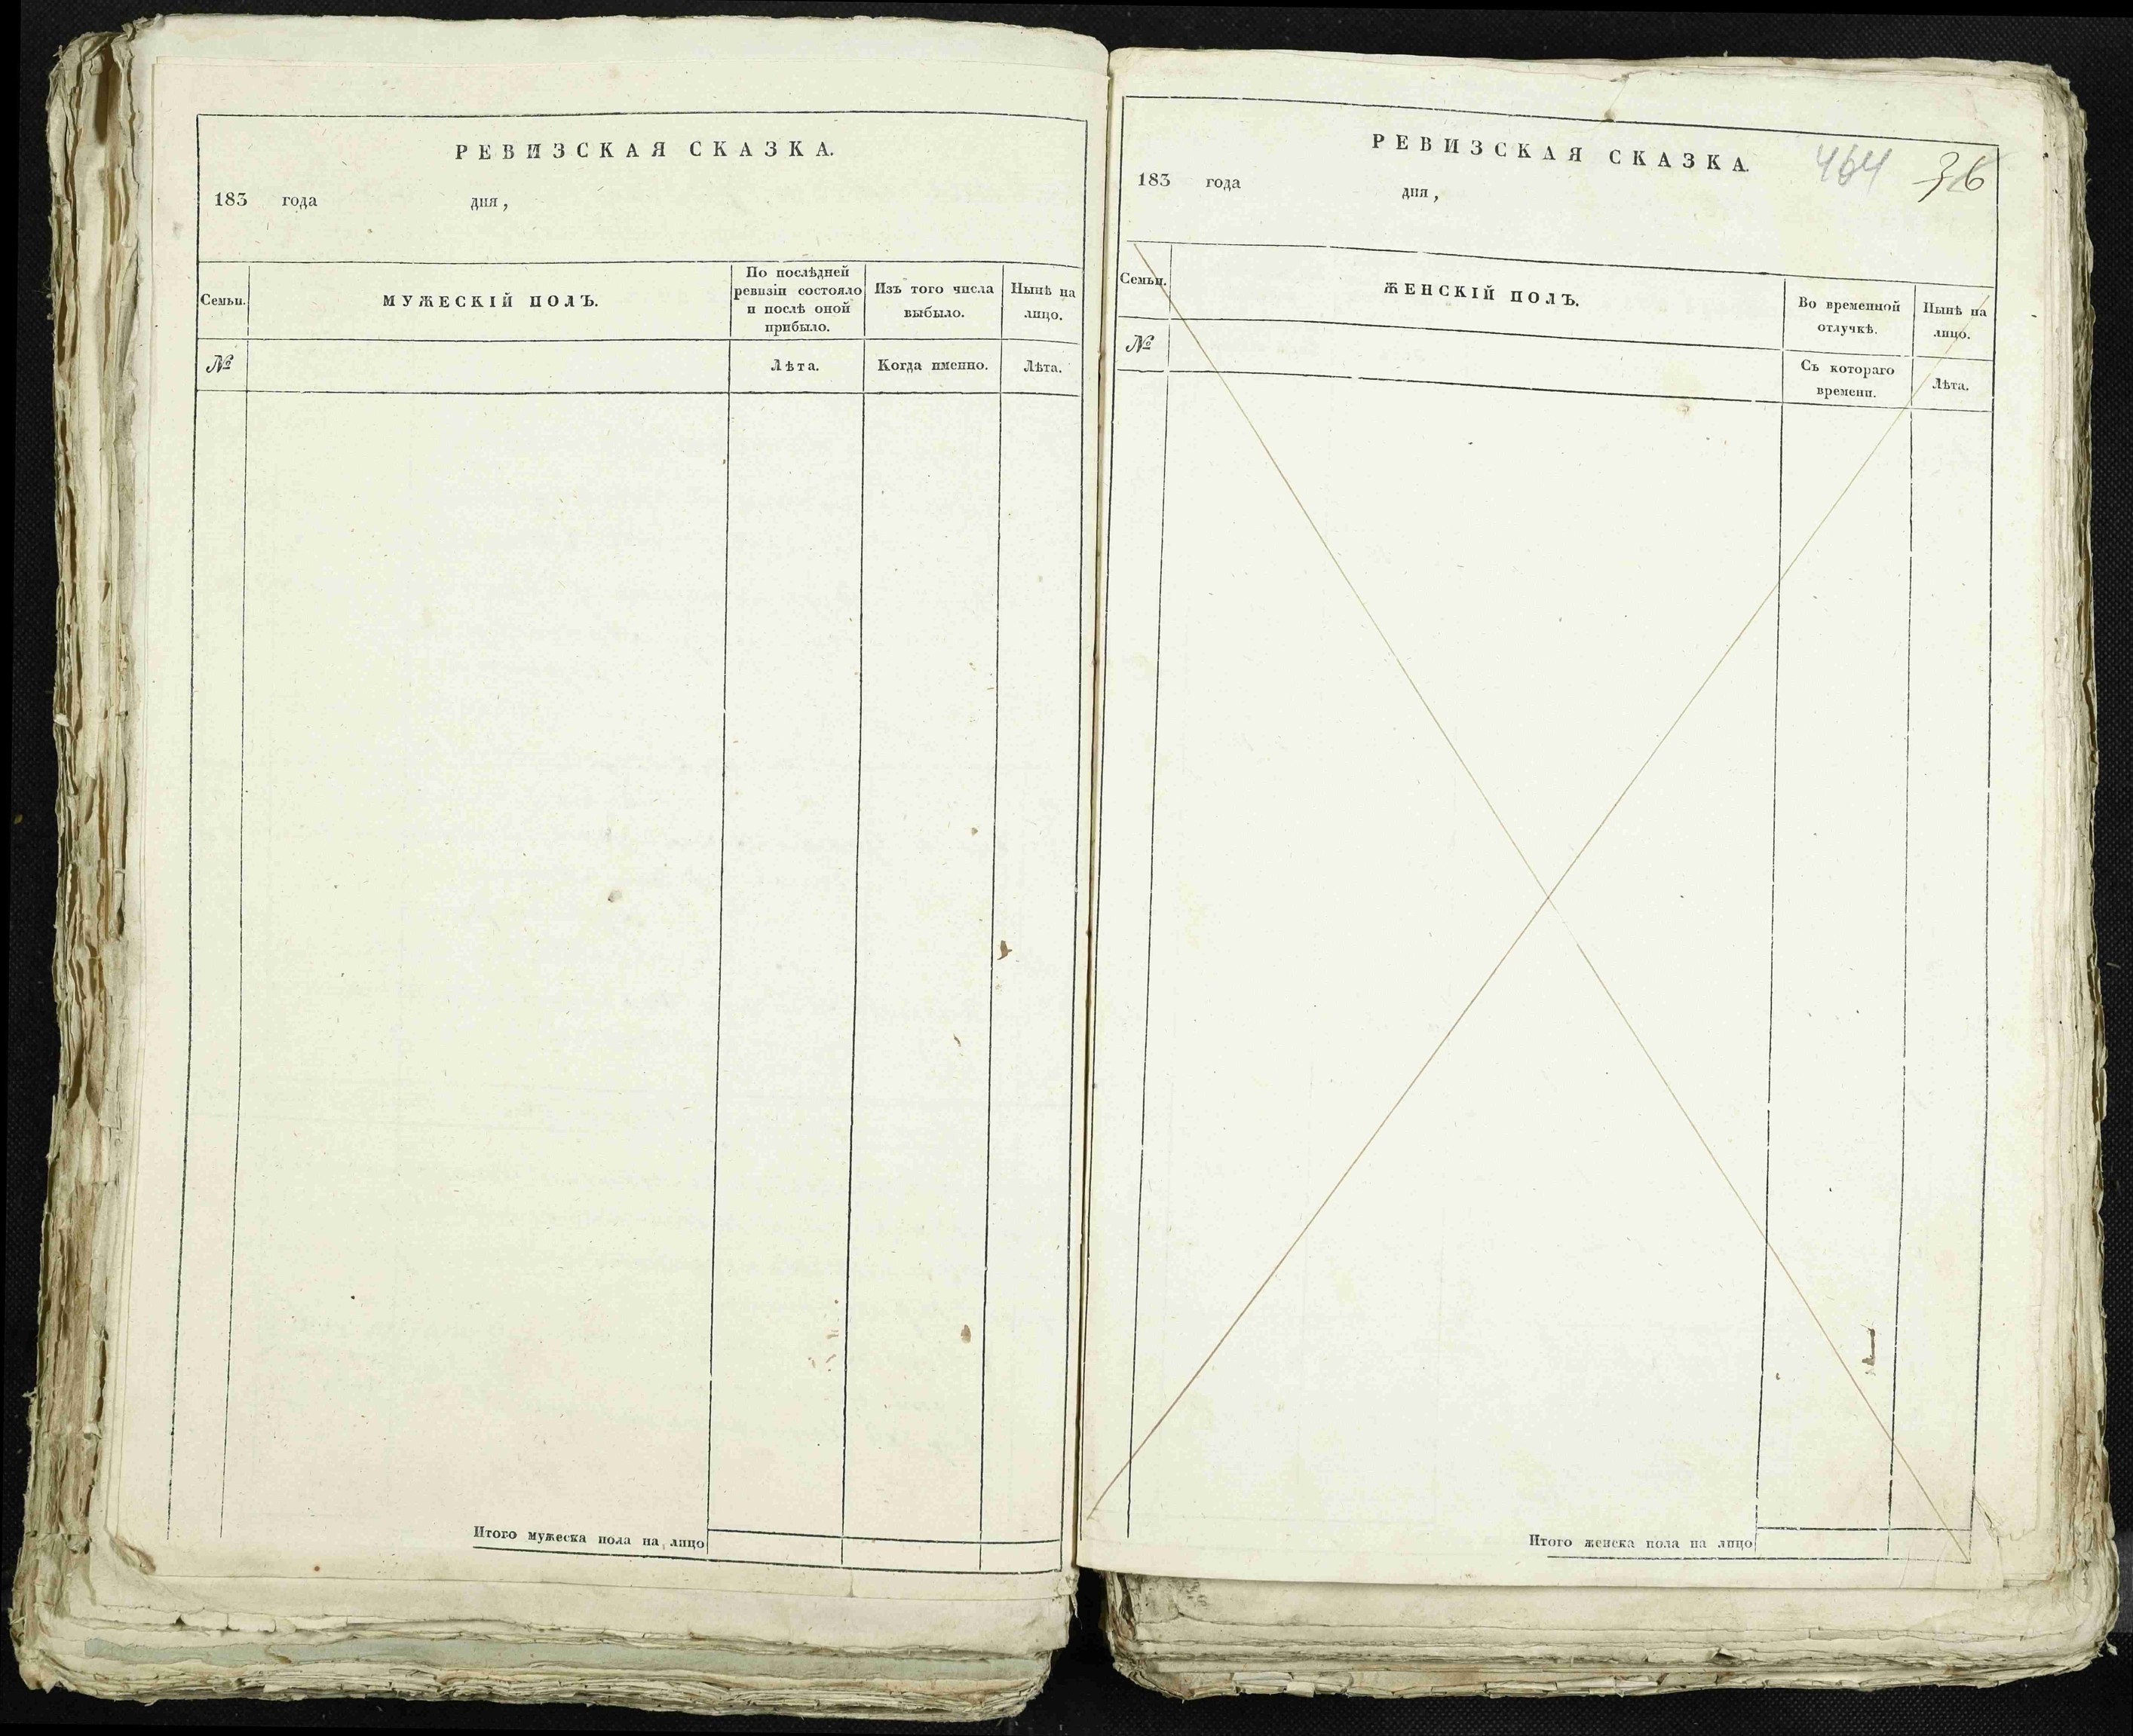 РЕВИЗСКАЯ СКАЗКА.
183 года дня,
Семьи.
МУЖЕСКІЙ ПОЛЪ.
По послѣдней
ревизіи состояло
и послѣ оной
прибыло.
Изъ того числа
выбыло.
Нынѣ на
лицо.
№
Лѣта.
Когда именно.
Лѣта.
Итого мужеска пола на лицо
РЕВИЗСКАЯ СКАЗКА.
464 36
183 года дня,
Семьи.
ЖЕНСКІЙ ПОЛЪ.
Во временной
отлучкѣ.
Нынѣ на
лицо.
№
Съ котораго
времени.
Лѣта.
Итого женска пола на лицо